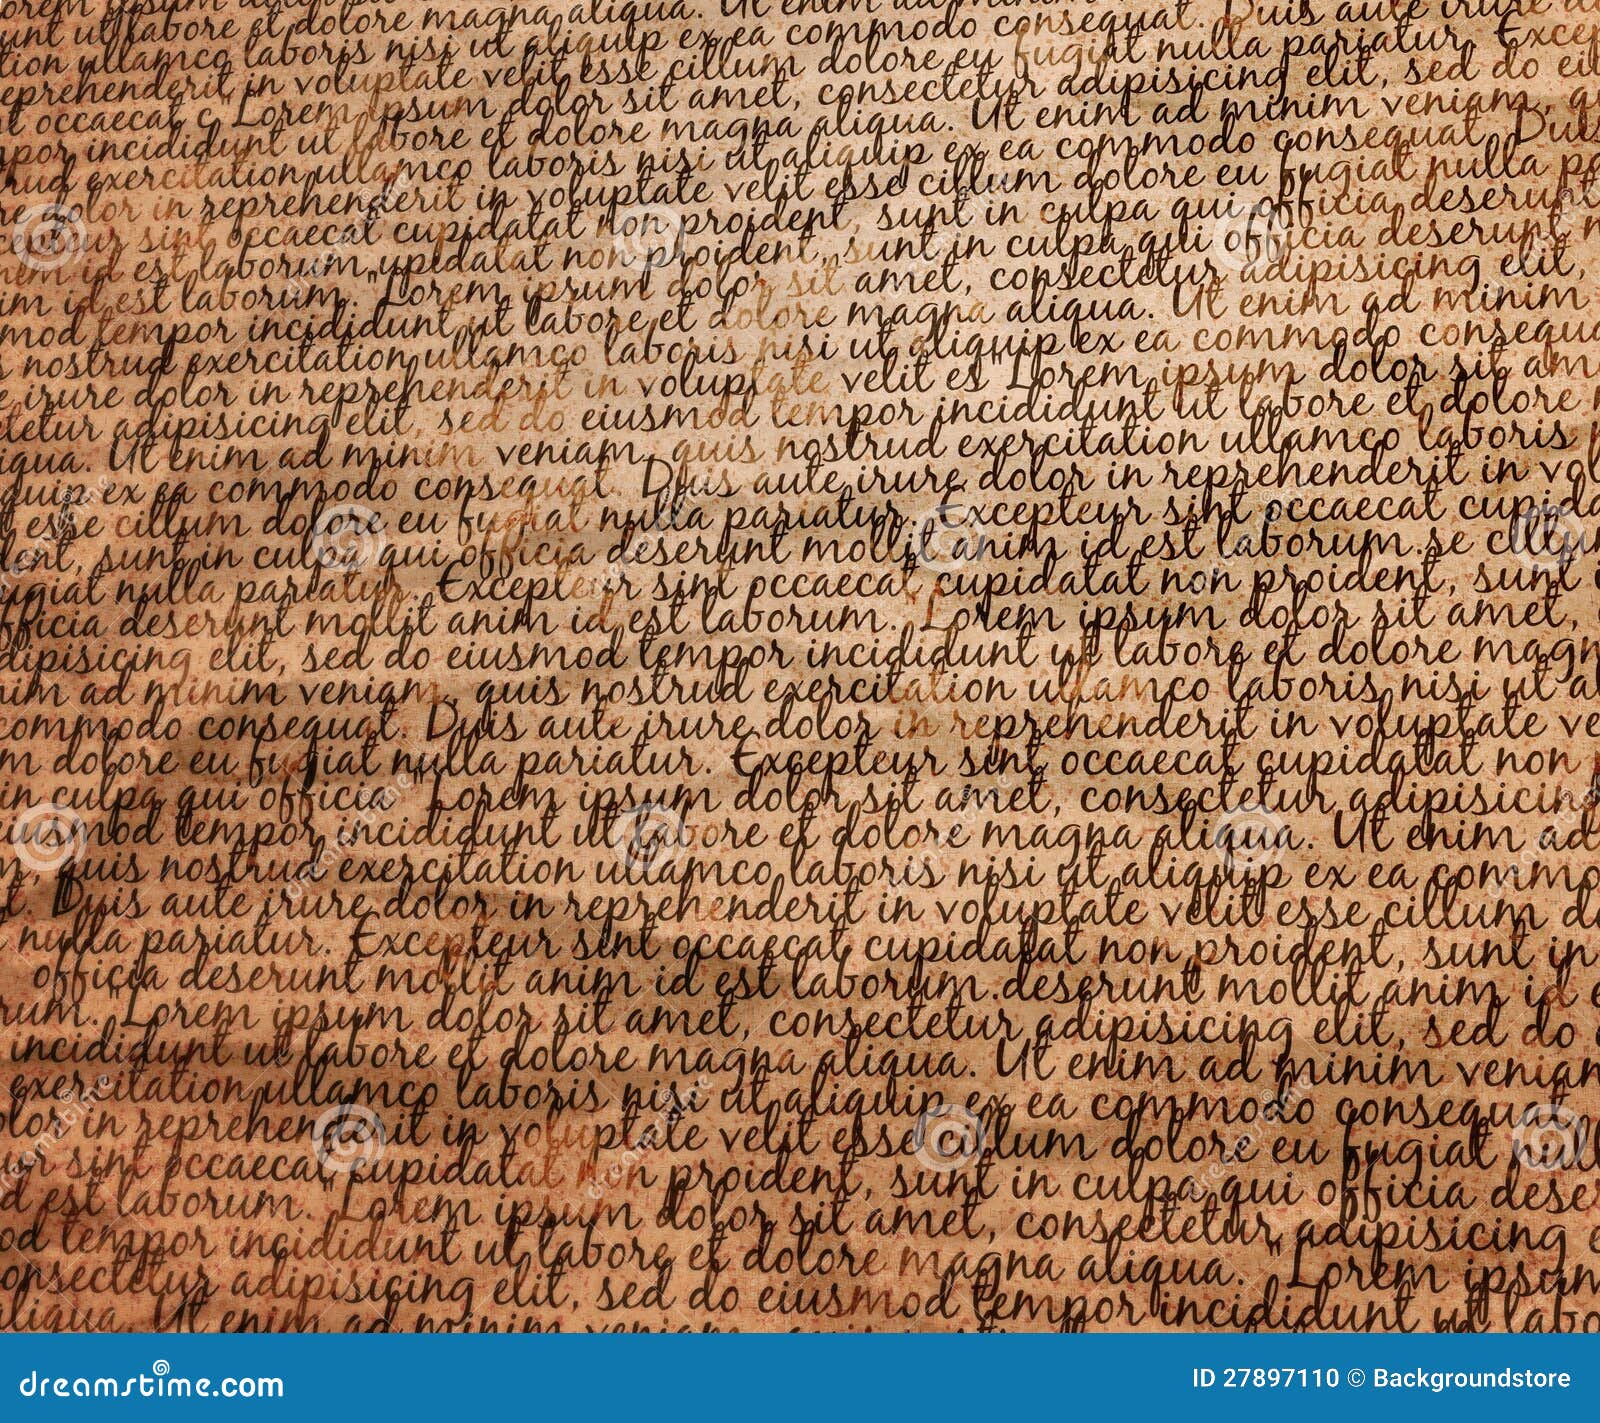 unt ut labore et dolore magna aliqua. Ut enim ad minim
tion ullamco laboris nisi ut aliquip ex ea commodo consequat. Duis aute irure
eprehenderit in voluptate velit esse cillum dolore eu fugiat nulla pariatur. Excep
t occaecat c "Lorem ipsum dolor sit amet, consectetur adipisicing elit, sed do eiu
por incididunt ut labore et dolore magna aliqua. Ut enim ad minim veniam, qu
rud exercitation ullamco laboris nisi ut aliquip ex ea commodo consequat. Duis
re dolor in reprehenderit in voluptate velit esse cillum dolore eu fugiat nulla pa
cepteur sint occaecat cupidatat non proident, sunt in culpa qui officia deserunt
nem id est laborum. upidatat non proident, sunt in culpa qui officia deserunt m
im id est laborum. "Lorem ipsum dolor sit amet, consectetur adipisicing elit,
mod tempor incididunt ut labore et dolore magna aliqua. Ut enim ad minim
s nostrud exercitation ullamco laboris nisi ut aliquip ex ea commodo consequa
e irure dolor in reprehenderit in voluptate velit es "Lorem ipsum dolor sit am
ctetur adipisicing elit, sed do eiusmod tempor incididunt ut labore et dolore
iqua. Ut enim ad minim veniam, quis nostrud exercitation ullamco laboris
quip ex ea commodo consequat. Duis aute irure dolor in reprehenderit in vol
t esse cillum dolore eu fugiat nulla pariatur. Excepteur sint occaecat cupida
dent, sunt in culpa qui officia deserunt mollit anim id est laborum.se cillum
ugiat nulla pariatur. Excepteur sint occaecat cupidatat non proident, sunt i
fficia deserunt mollit anim id est laborum. "Lorem ipsum dolor sit amet,
dipisicing elit, sed do eiusmod tempor incididunt ut labore et dolore magn
nim ad minim veniam, quis nostrud exercitation ullamco laboris nisi ut al
commodo consequat. Duis aute irure dolor in reprehenderit in voluptate ve
m dolore eu fugiat nulla pariatur. Excepteur sint occaecat cupidatat non
in culpa qui officia "Lorem ipsum dolor sit amet, consectetur adipisicing
eiusmod tempor incididunt ut labore et dolore magna aliqua. Ut enim ad
m, quis nostrud exercitation ullamco laboris nisi ut aliquip ex ea commo
t. Duis aute irure dolor in reprehenderit in voluptate velit esse cillum do
nulla pariatur. Excepteur sint occaecat cupidatat non proident, sunt in
officia deserunt mollit anim id est laborum.deserunt mollit anim id e
rum. "Lorem ipsum dolor sit amet, consectetur adipisicing elit, sed do
incididunt ut labore et dolore magna aliqua. Ut enim ad minim veniam
exercitation ullamco laboris nisi ut aliquip ex ea commodo consequat.
olor in reprehenderit in voluptate velit esse cillum dolore eu fugiat null
ur sint occaecat cupidatat non proident, sunt in culpa qui officia deser
d est laborum. "Lorem ipsum dolor sit amet, consectetur adipisicing e
od tempor incididunt ut labore et dolore magna aliqua. "Lorem ipsum
onsectetur adipisicing elit, sed do eiusmod tempor incididunt ut labo
aliqua. Ut enim ad minim veniam, quis
dreamstime.com
ID 27897110 © Backgroundstore